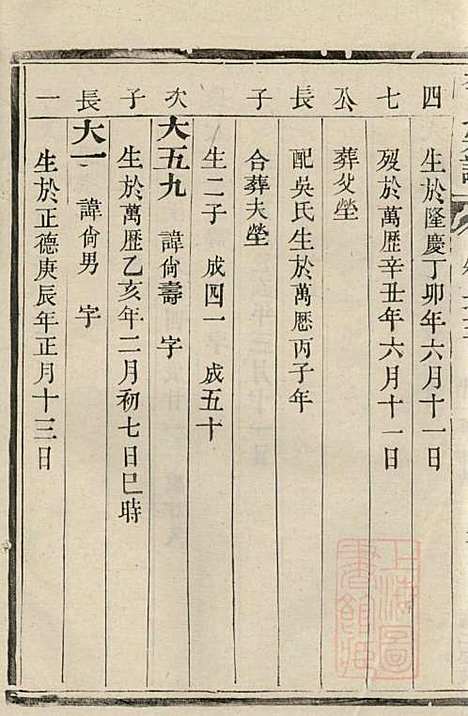 四 生於隆慶丁卯年六月十一日
七 歿於萬歷辛丑年六月十一日
公 葬父塋
長 配吳氏生於萬歷丙子年
子 合葬夫塋
生二子 成四一 成五十
次 大五九 諱尙壽 字
子 生於萬歷乙亥年二月初七日巳時
長 大一 諱尙男 字
一 生於正德庚辰年正月十三日
上海圖書館藏